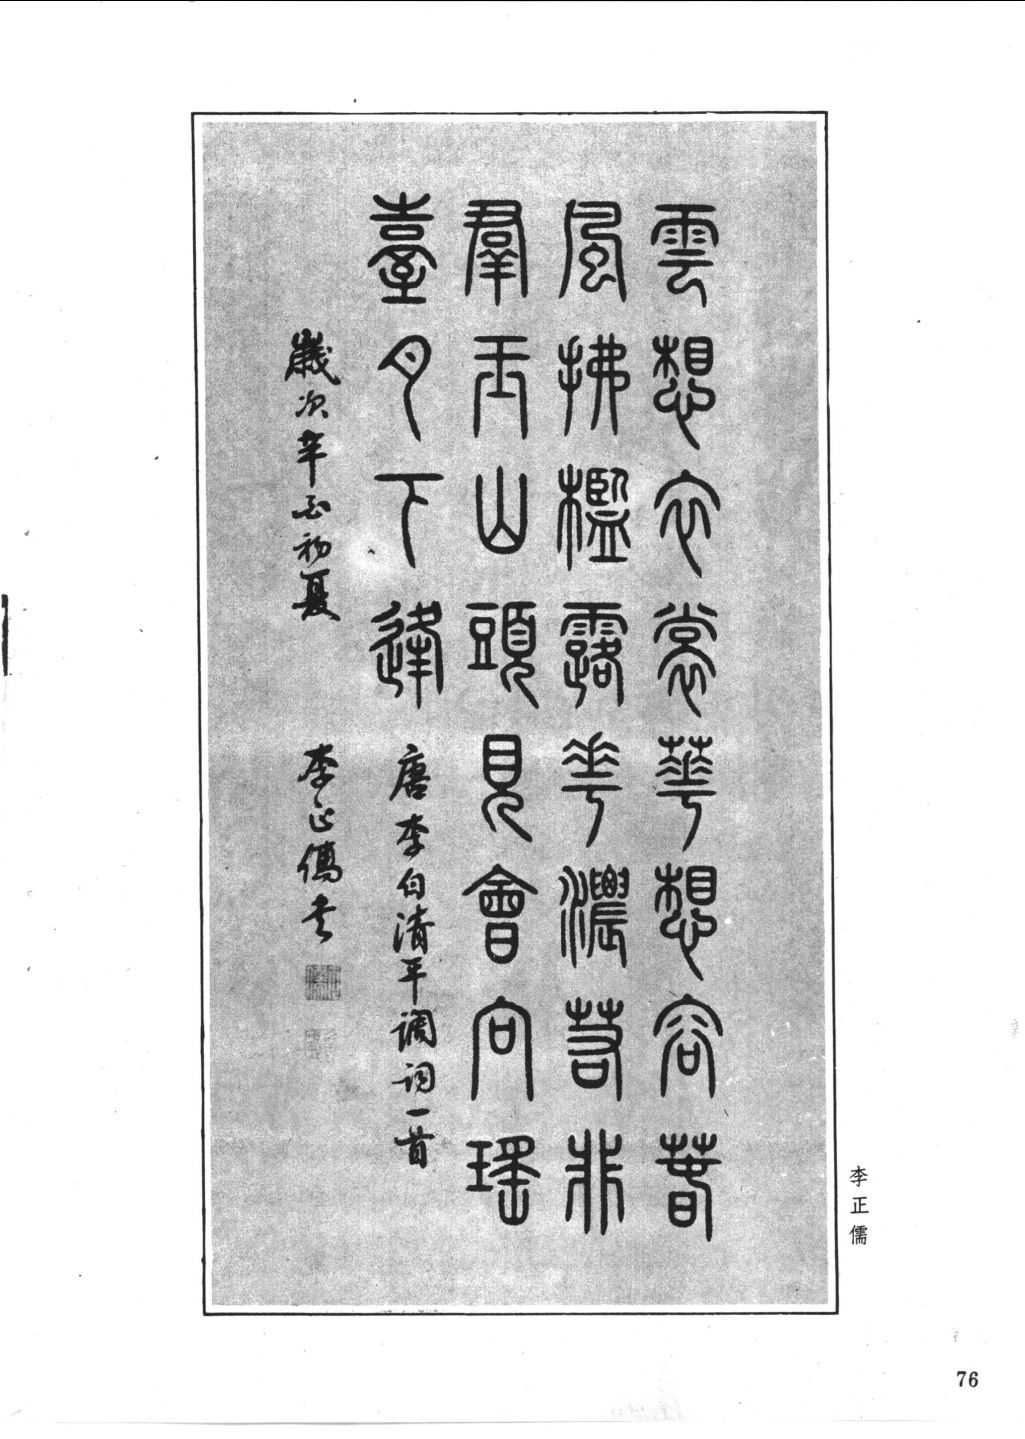 雲想衣裳華想容萅
風拂檻露華濃若非
羣玉山頭見會向瑤
臺月下逢
唐李白清平调词一首
歲次辛酉初夏
李正儒书
李正儒
76